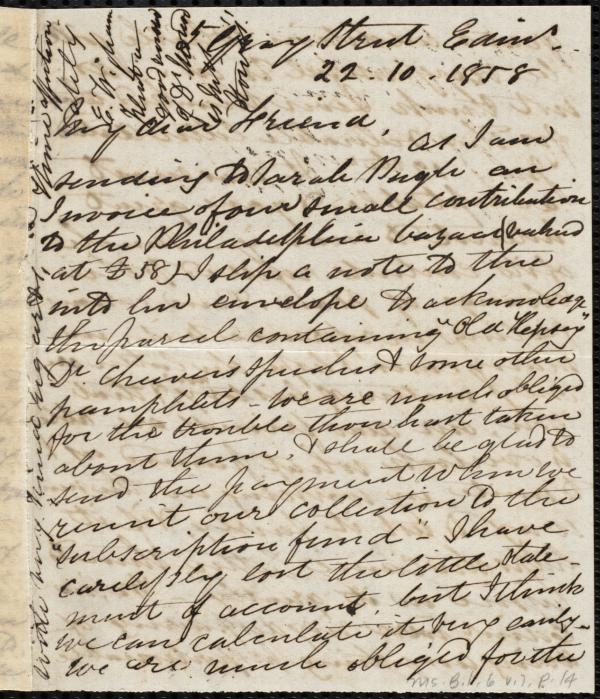 5 Gray Street Edinr.
22. 10. 1858
My dear Friend,
As I am
sending to Sarah Pugh an
Invoice of our small contribution
to the Philadelphia bazaar (valued
at £58) I slip a note to thee
into her envelope to acknowledge
the parcel containing "Old Hepsey"
Dr. Cheever's speeches & some other
pamphlets - we are much obliged
for the trouble thou hast taken
about them, & shall be glad to
send the payment when we
remit our collection to the
"subscription fund" - I have
carelessly lost the little state-
ment of account, but I think
we can calculate it very easily -
We are much obliged for the
With my kind regards,
Thine affection
ately
E. Wigham
Ms. B.1.6 v.7, p.14